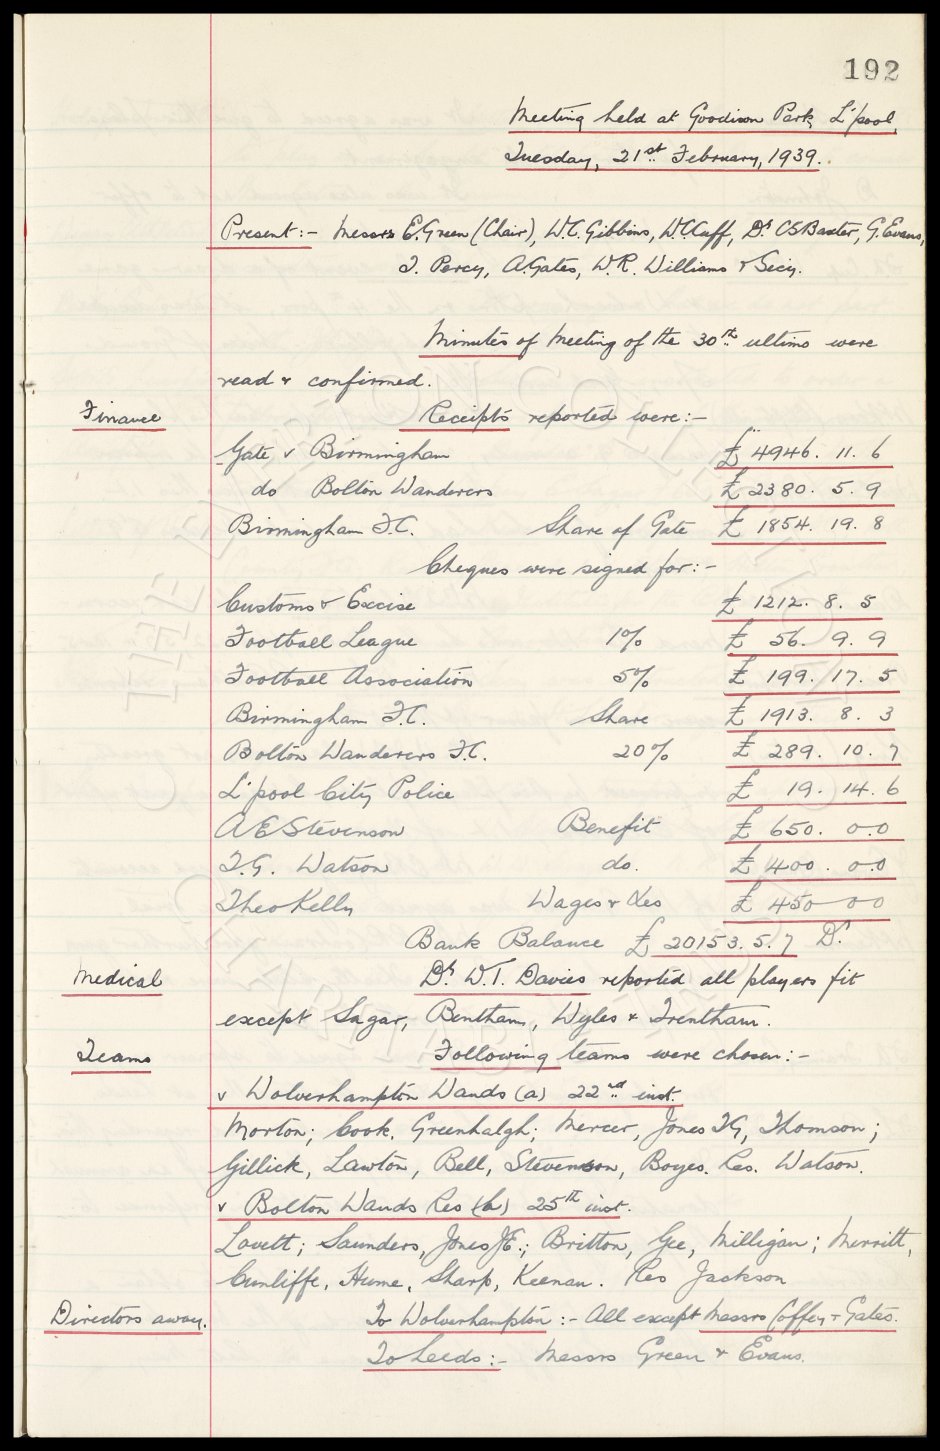 192
Meeting held at Goodison Park, L'pool,
Tuesday, 21st February, 1939.
Present:- Messrs E. Green (Chair), W.C. Gibbins, W.C. Cuff, Dr CS Baxter, G. Evans,
T. Percy, A. Gates, W.R. Williams & Secy.
Minutes of Meeting of the 30th ultimo were
read & confirmed.
Finance Receipts reported were:-
Gate v Birmingham £4946. 11. 6
do Bolton Wanderers £2380. 5. 9
Birmingham F.C. Share of Gate £1854. 19. 8
Cheques were signed for:-
Customs & Excise £ 1212. 8. 5
Football League 1% £ 56. 9. 9
Football Association 5% £ 199. 17. 5
Birmingham F.C. Share £ 1913. 8. 3
Bolton Wanderers F.C. 20% £ 289. 10. 7
L'pool City Police £ 19. 14. 6
A E Stevenson Benefit £ 650. 0.0
T.G. Watson do. £ 400. 0.0
Theo Kelly Wages & Xes £ 450 0 0
Bank Balance £ 20153. 5. 7 Dr.
Medical Dr. W.T. Davies reported all players fit
except Sagar, Bentham, Wyles & Trentham.
Teams Following teams were chosen:-
v Wolverhampton Wands (a) 22nd inst.
Morton; Cook, Greenhalgh; Mercer, Jones TG, Thomson;
Gillick, Lawton, Bell, Stevenson, Boyes. Res. Watson.
v Bolton Wands Res (h) 25th inst.
Lovett; Saunders, Jones JE.; Britton, Gee, Milligan; Merritt,
Cunliffe, Hume, Sharp, Keenan. Res Jackson
Directors away. To Wolverhampton:- All except Messrs Coffey & Gates.
To Leeds:- Messrs Green & Evans.